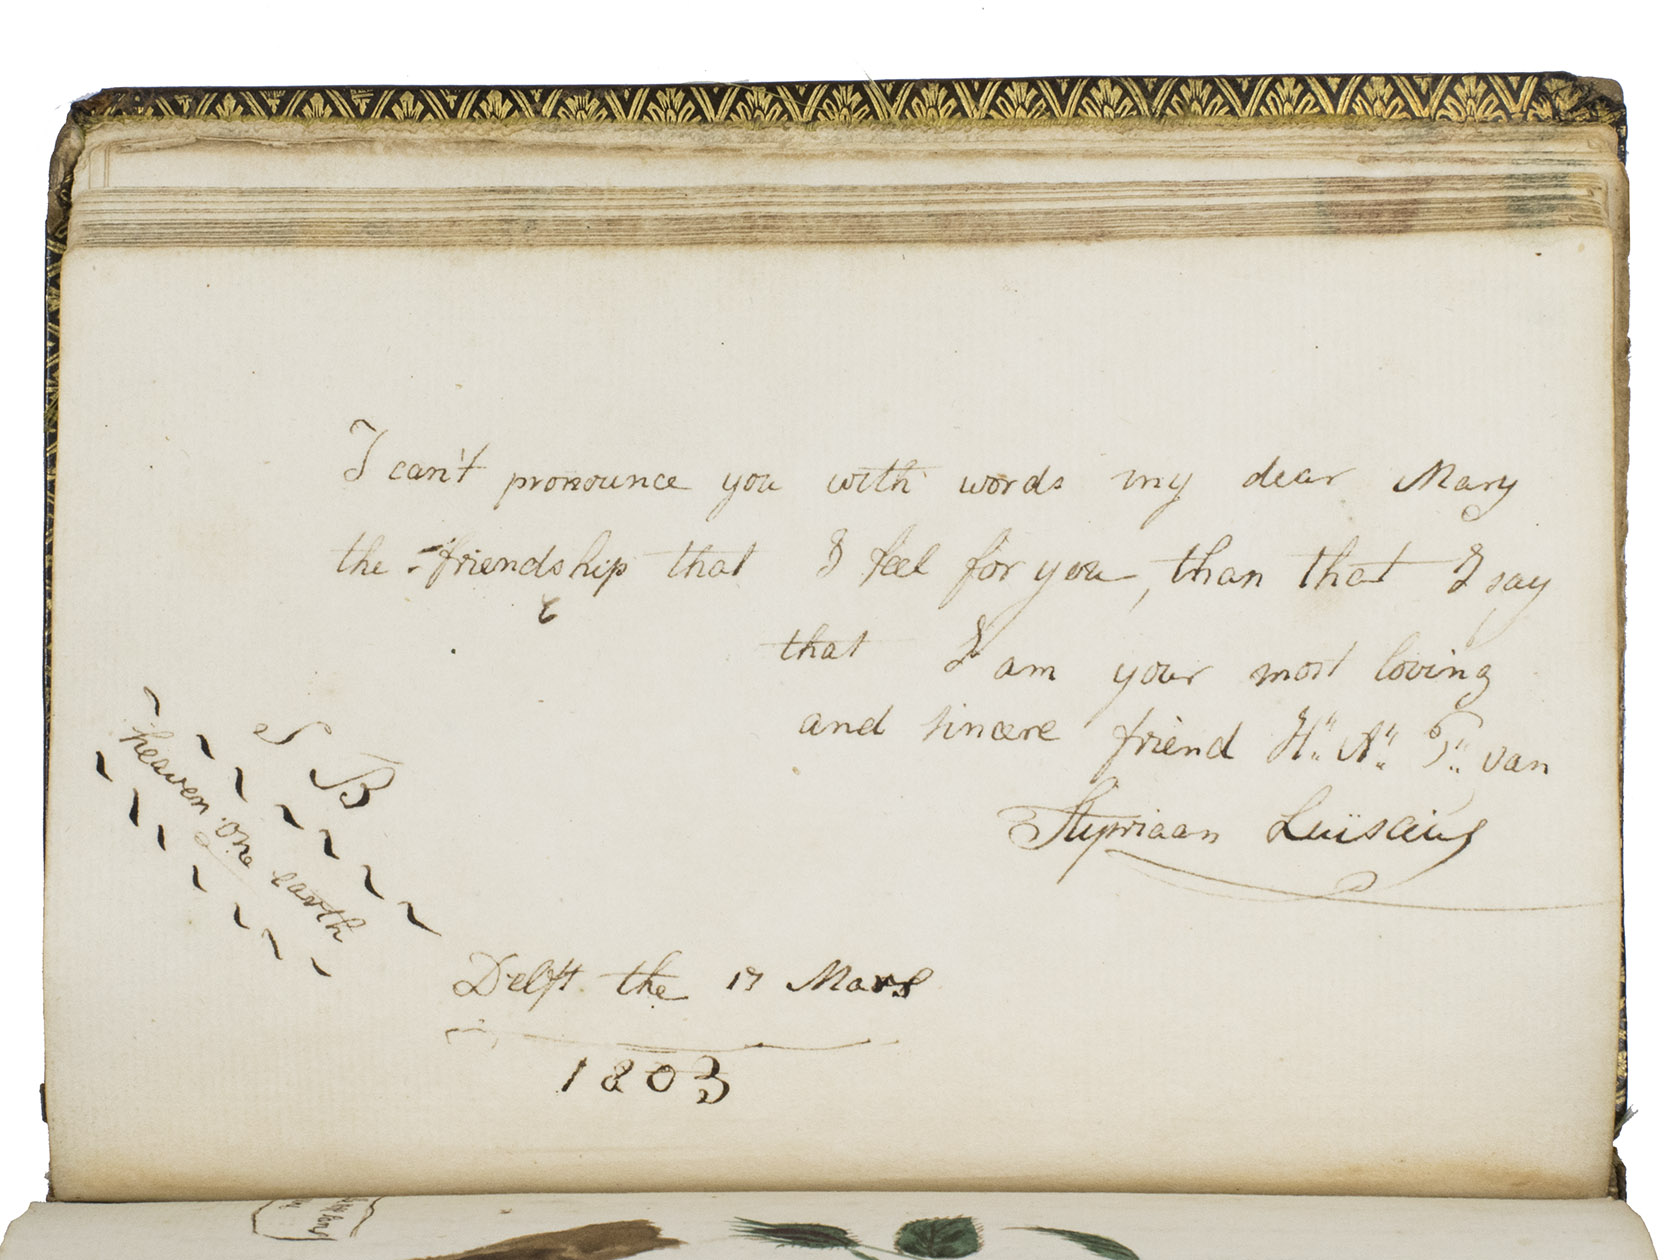 I can't pronounce you with words my dear Mary
the friendship that I feel for you, than that I say
that I am your most loving
and sincere friend H:" A:" T:" van
Stipriaan Luïscius
S B
heaven one earth
Delft the 17 Mars
1803